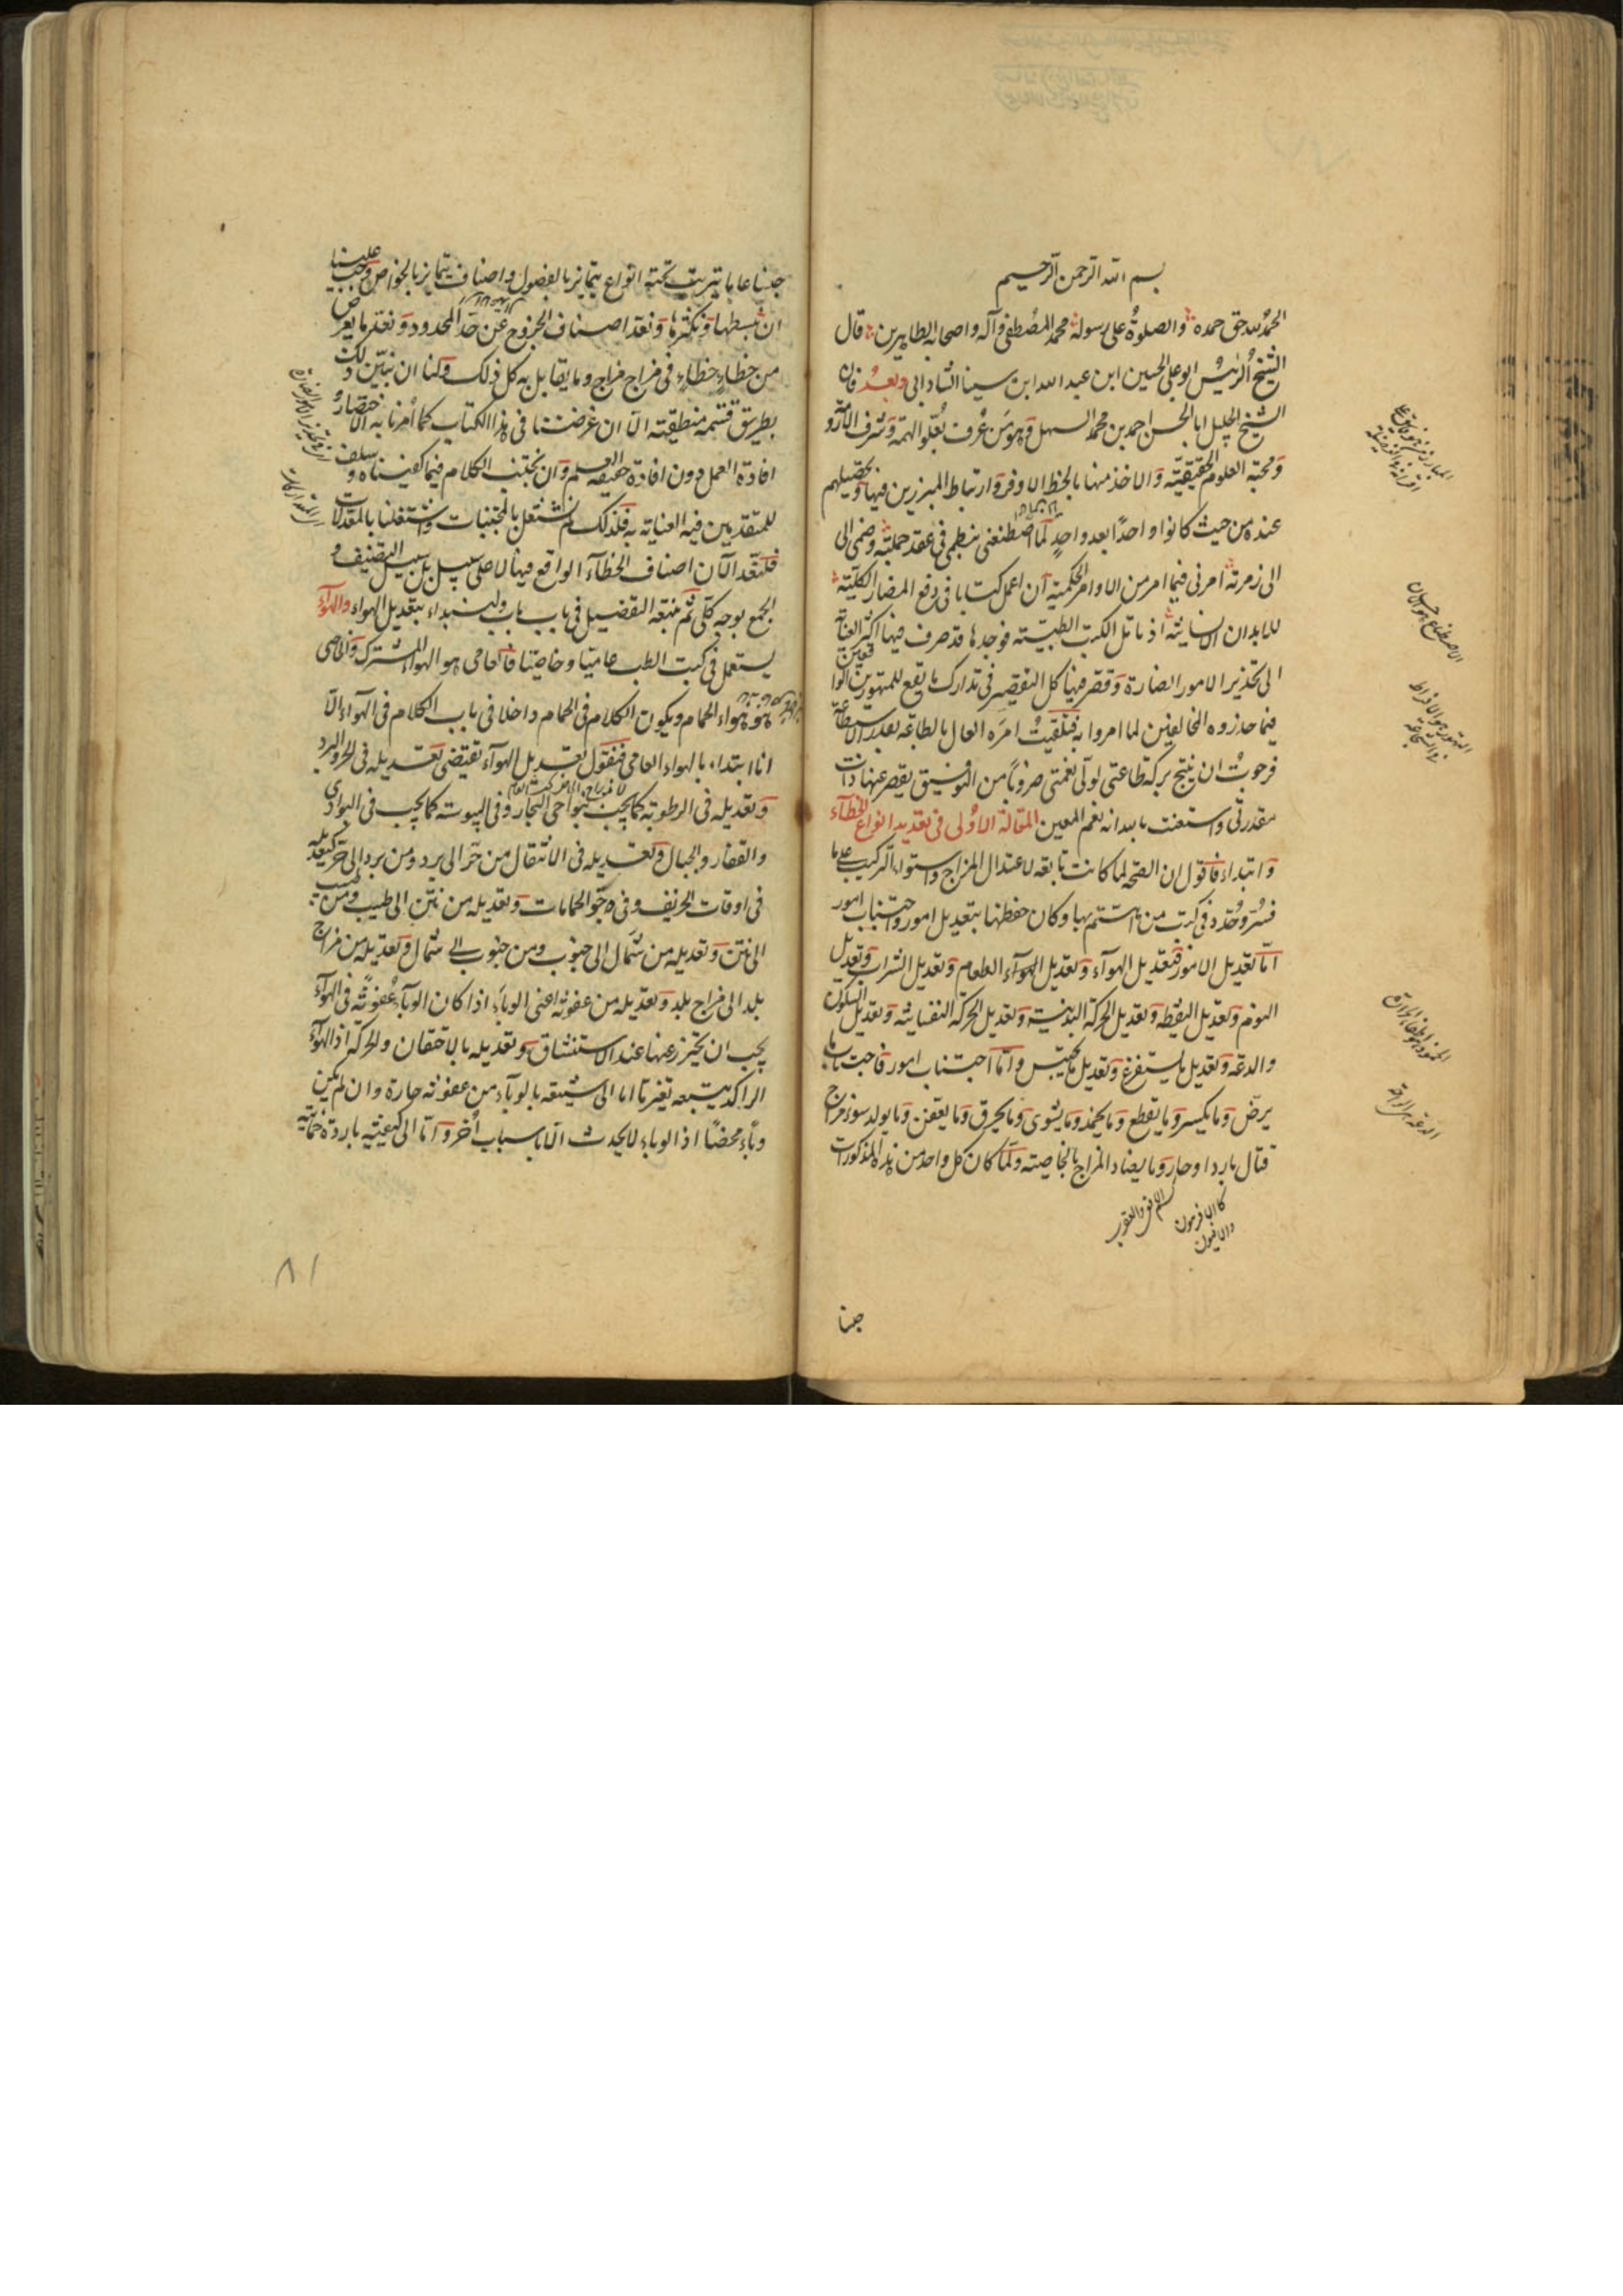 بسم الله الرحمن الرحيم
الحمد لله حق حمده والصلوة على رسوله محمد المصطفى وآله واصحابه الطاهرين قال
الشيخ الرئيس ابو على الحسين ابن عبد الله ابن سينا وبعد فان
الشيخ الجليل ابا الحسن احمد بن محمد السهلى وهو من عرف بعلو الهمة وشرف الآراء
ومحبة العلوم الحقيقية والاخذ منها بالحظ الاوفر وارتباط المبرزين فيها وتحصيلهم
عنده من حيث كانوا واحدا بعد واحد لما اصطنعنى بنظمى فى عقد جملته وضمنى الى
الى زمرته امرنى فيما امر من الاوامر الحكمية ان اعمل كتابا فى دفع المضار الكلية
للابدان الانسانية اذ تأمل الكتب الطبية فوجدها قد صرف فيها اكثر العناية
الى تحذير الامور الضارة وقصر فيها كل التقصير فى تدارك ما يقع للمتهورين
فيما حذروه المخالفين لما امروا به فتلقيت امره العالى بالطاعة بقدر الاستطاعة
فرجوت ان ينتج بركة طاعتى لولى نعمتى ضروبا من التوفيق يقصر عنها ذات
مقدرتى واستعنت بالله انه نعم المعين المقالة الاولى فى تعديد انواع الخطآء
وابتداء فاقول ان الصحة لما كانت تابعة لاعتدال المزاج واستواء التركيب على ما
فسر وحدد فى كتب من اهتم بها وكان حفظها بتعديل امور واجتناب امور
اما تعديل الامور فتعديل الهوآء وتعديل الطعام وتعديل الشراب وتعديل
النوم وتعديل اليقظة وتعديل الحركة البدنية وتعديل الحركة النفسانية وتعديل السكون
والدعة وتعديل ما يستفرغ وتعديل ما يحتبس واما اجتناب امور فاجتناب ما
يرض وما يكسر وما يقطع وما يجمد وما يشوى وما يحرق وما يعفن وما يولد سوء مزاج
قتال باردا وحار وما يضاد المزاج بالخاصية ولما كان كل واحد من هذه المذكورات
كالافربيون
والافيون
جنسا
جنسا عاما تترتب تحته انواع يتمايز بالفصول واصناف يتمايز بالخواص وجب علينا
ان نبسطها ونكثرها ونعد اصناف الخروج عن حد المحدود ونعد ما يعرض
من خطاء خطاء فى مزاج مزاج وما يقابل به كل ذلك وكنا ان نبين ذلك
بطريق قسمة منطقية الا ان غرضنا فى هذا الكتاب كما امرنا به الاختصار
افادة العمل دون افادة حقيقة العلم وان نجتنب الكلام فيما كفيناه وسلف
للمتقدمين فيه العناية به فلذلك لم نشتغل بالمجتنبات واشتغلنا بالمعدلات
فلنعد الآن اصناف الخطآء الواقع فيها لا على سبيل بل سبيل التصنيف و
الجمع بوجه كلى ثم نتبعه التفصيل فى باب باب ولنبداء بتعديل الهواء والهوآء
يستعمل فى كتب الطب عاميا وخاصيا فالعامى هو الهواء المشترك والخاصى
هواء الحمام ويكون الكلام فى الحمام داخلا فى باب الكلام فى الهوآء الا
انا ابتداء بالهواء العامى فنقول تعديل الهوآء يقتضى تعديله فى الحر والبرد
وتعديله فى الرطوبة كما يجب بنواحى البحار وفى اليبوسة كما يجب فى البوادى
والقفار والجبال وتعديله فى الانتقال من حر الى برد ومن برد الى حر كتعديله
فى اوقات الخريف وفى جو الحمامات وتعديله من نتن الى طيب ومن طيب
الى نتن وتعديله من شمال الى جنوب ومن جنوب الى شمال وتعديله من مزاج
بلد الى مزاج بلد وتعديله من عفونة اعنى الوباء اذا كان الوبآء عفونة فى الهوآء
يجب ان يحترز عنها عند الاستنشاق وتعديله بالاحتقان والحركة اذ الهوآء
الراكد يتبعه تغير ما اما الى شبيه بالوبآء من عفونة حارة وان لم يكن
وبأء محضا اذ الوباء لا يحدث الا باسباب أخر واما الى كيفية باردة خمامية
٨١